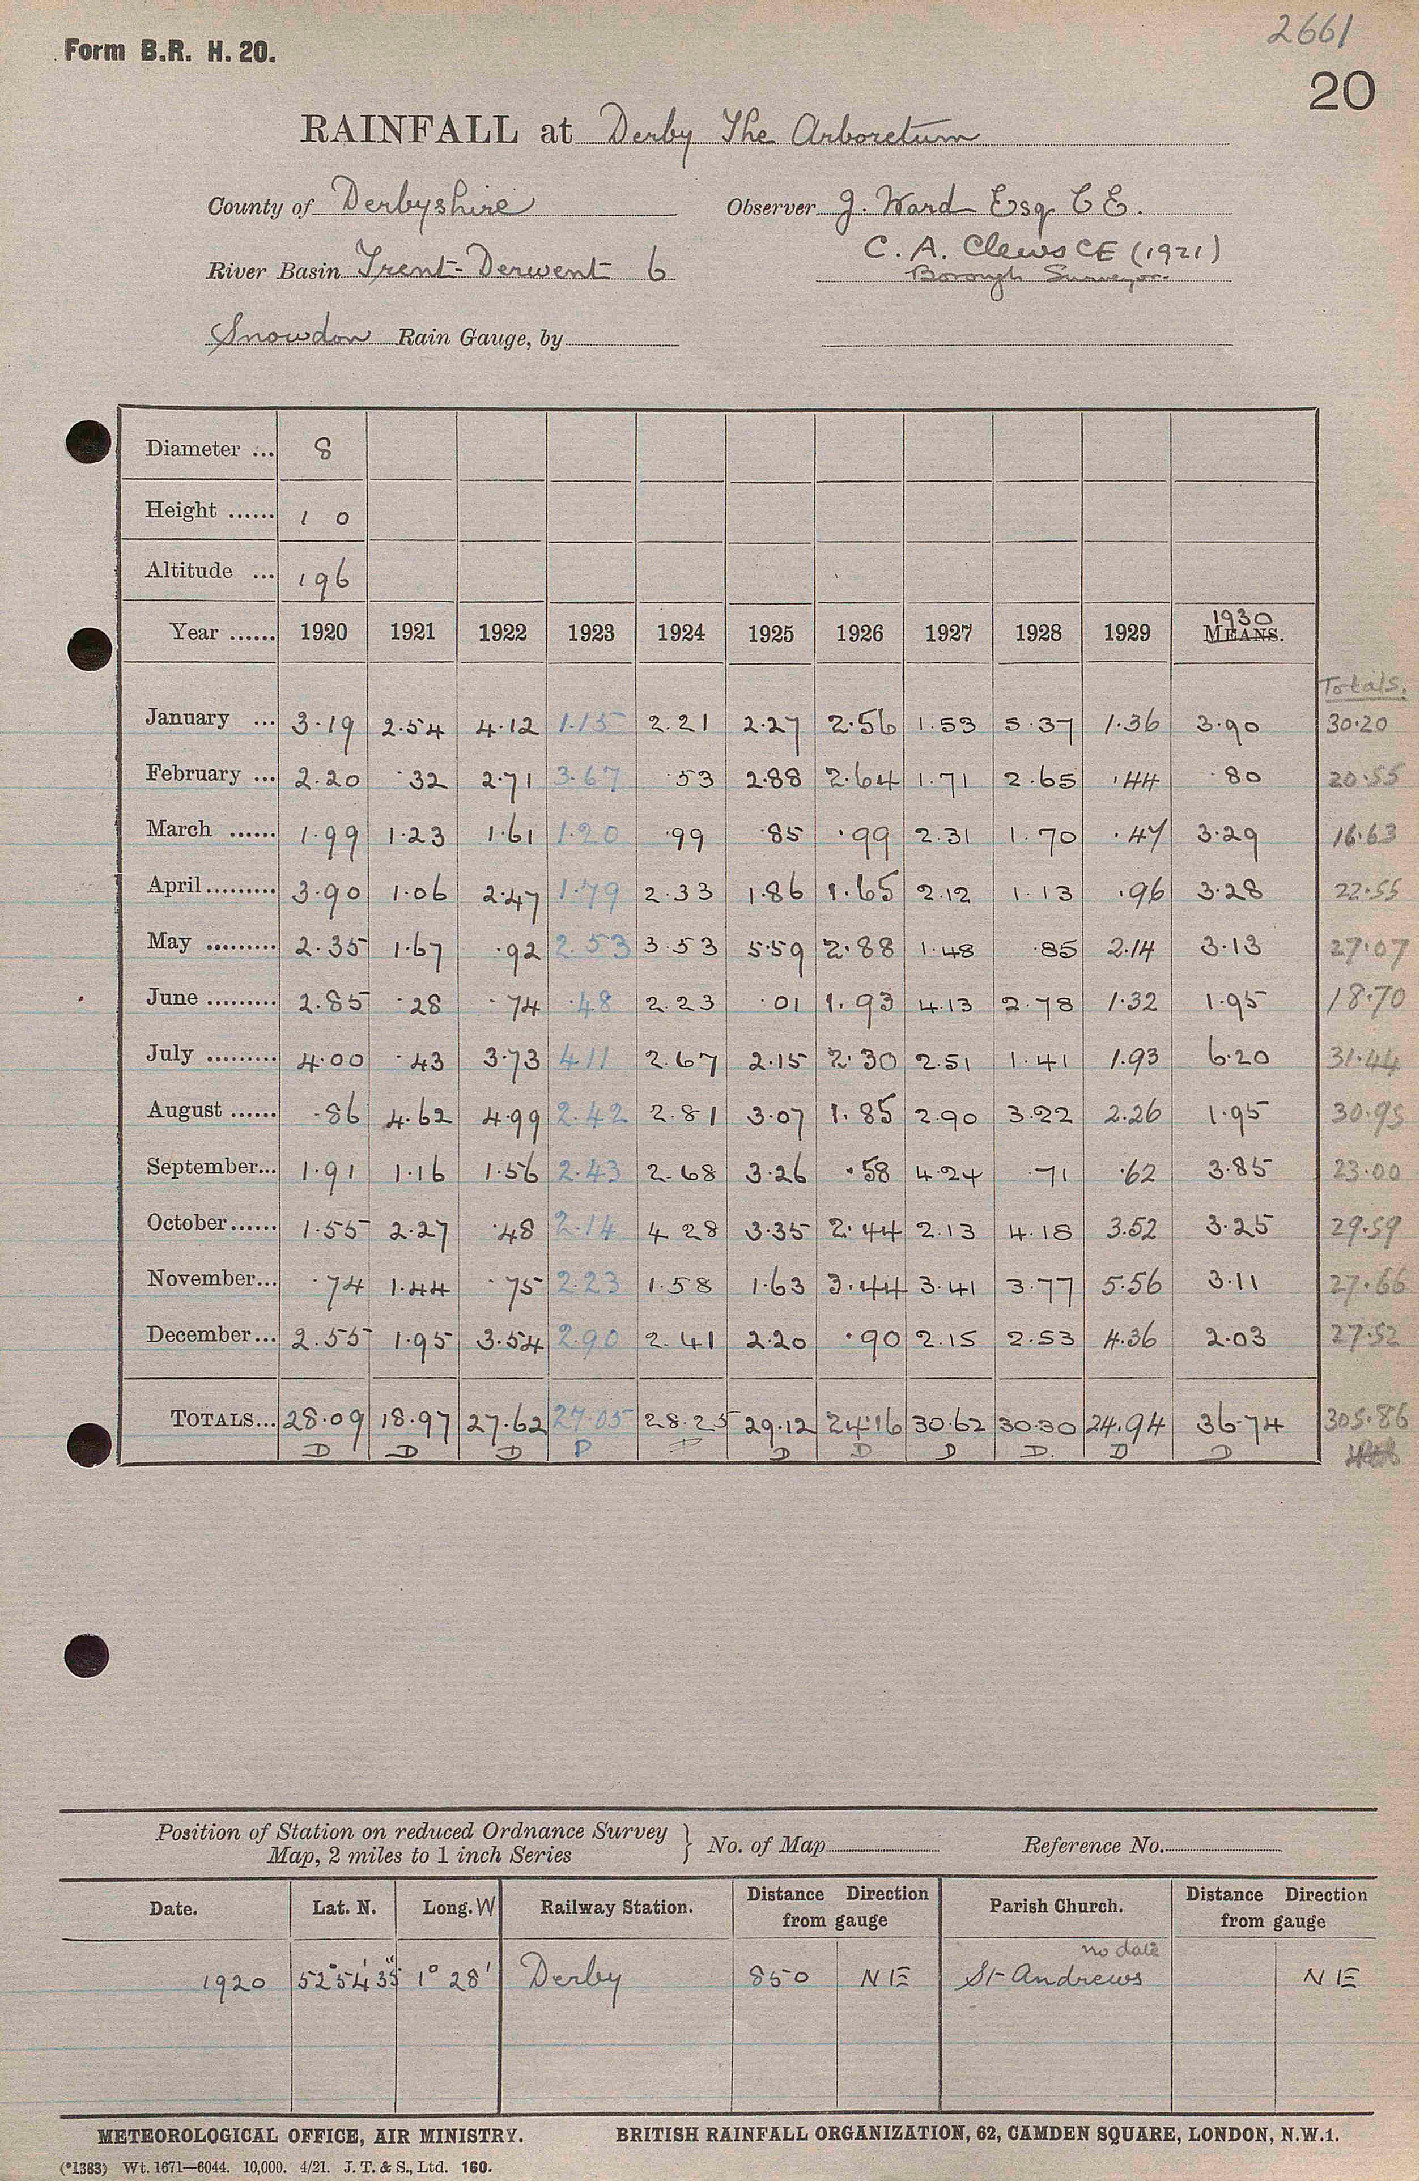 2661
Form B.R. H. 20.
20
RAINFALL at Derby The Arboretum
County of Derbyshire Observer J. Ward Esq C E.
C. A. Clews CE (1921)
River Basin Trent-Derwent 6 Borough Surveyor
Snowdon Rain Gauge, by
Diameter ... 8
Height ...... 1 0
Altitude ... 196
Year ...... 1920 1921 1922 1923 1924 1925 1926 1927 1928 1929 1930 MEANS.
Totals.
January ... 3.19 2.54 4.12 1.15 2.21 2.27 2.56 1.53 5.37 1.36 3.90 30.20
February ... 2.20 .32 2.71 3.67 .53 2.88 2.64 1.71 2.65 .44 .80 20.55
March ...... 1.99 1.23 1.61 1.20 .99 .85 .99 2.31 1.70 .47 3.29 16.63
April ......... 3.90 1.06 2.47 1.79 2.33 1.86 1.65 2.12 1.13 .96 3.28 22.55
May ......... 2.35 1.67 .92 2.53 3.53 5.59 2.88 1.48 .85 2.14 3.13 27.07
June ......... 2.85 .28 .74 .48 2.23 .01 1.93 4.13 2.78 1.32 1.95 18.70
July ......... 4.00 .43 3.73 4.11 2.67 2.15 2.30 2.51 1.41 1.93 6.20 31.44
August ...... .86 4.62 4.99 2.42 2.81 3.07 1.85 2.90 3.22 2.26 1.95 30.95
September... 1.91 1.16 1.56 2.43 2.68 3.26 .58 4.24 .71 .62 3.85 23.00
October...... 1.55 2.27 .48 2.14 4.28 3.35 2.44 2.13 4.18 3.52 3.25 29.59
November... .74 1.44 .75 2.23 1.58 1.63 3.44 3.41 3.77 5.56 3.11 27.66
December... 2.55 1.95 3.54 2.90 2.41 2.20 .90 2.15 2.53 4.36 2.03 27.52
TOTALS... 28.09 18.97 27.62 27.05 28.25 29.12 24.16 30.62 30.30 24.94 36.74 305.86
D D D D D D D D D D D
Position of Station on reduced Ordnance Survey
Map, 2 miles to 1 inch Series } No. of Map Reference No.
Date. Lat. N. Long. W Railway Station. Distance Direction from gauge Parish Church. Distance Direction from gauge
no date
1920 52° 54' 35" 1° 28' Derby 850 NE St Andrews NE
METEOROLOGICAL OFFICE, AIR MINISTRY. BRITISH RAINFALL ORGANIZATION, 62, CAMDEN SQUARE, LONDON, N.W.1.
(*1383) Wt. 1671—6044. 10,000. 4/21. J. T. & S., Ltd. 160.